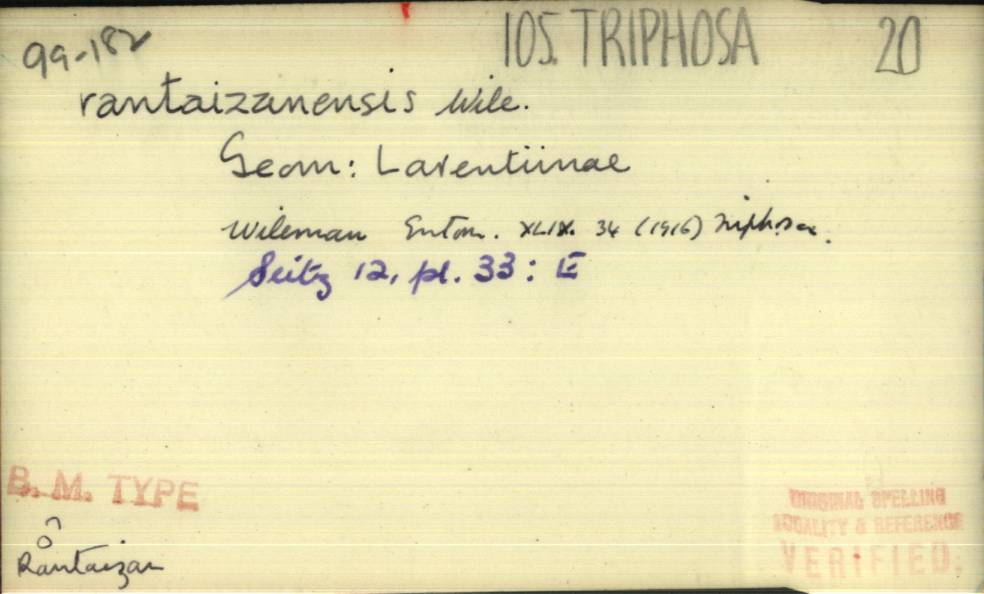 99-182 105. TRIPHOSA 20
rantaizanensis Wile.
Geom: Larentiinae
Wileman Entom. XLIX. 34 (1916) Triphosa.
Seitz 12, pl. 33: E
B. M. TYPE
♂
Rantaizan
ORIGINAL SPELLING
LOCALITY & REFERENCE
VERIFIED.